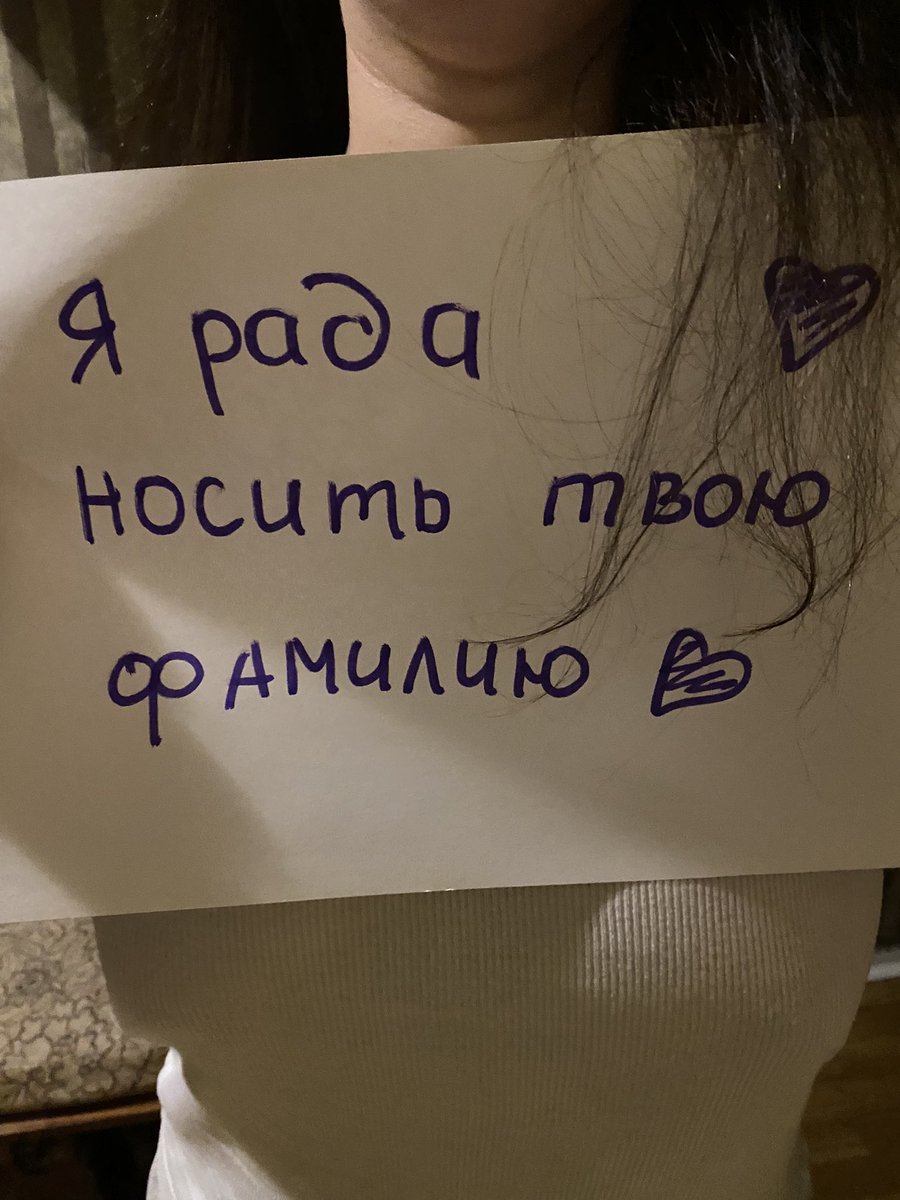 Я рада
носить твою
фамилию